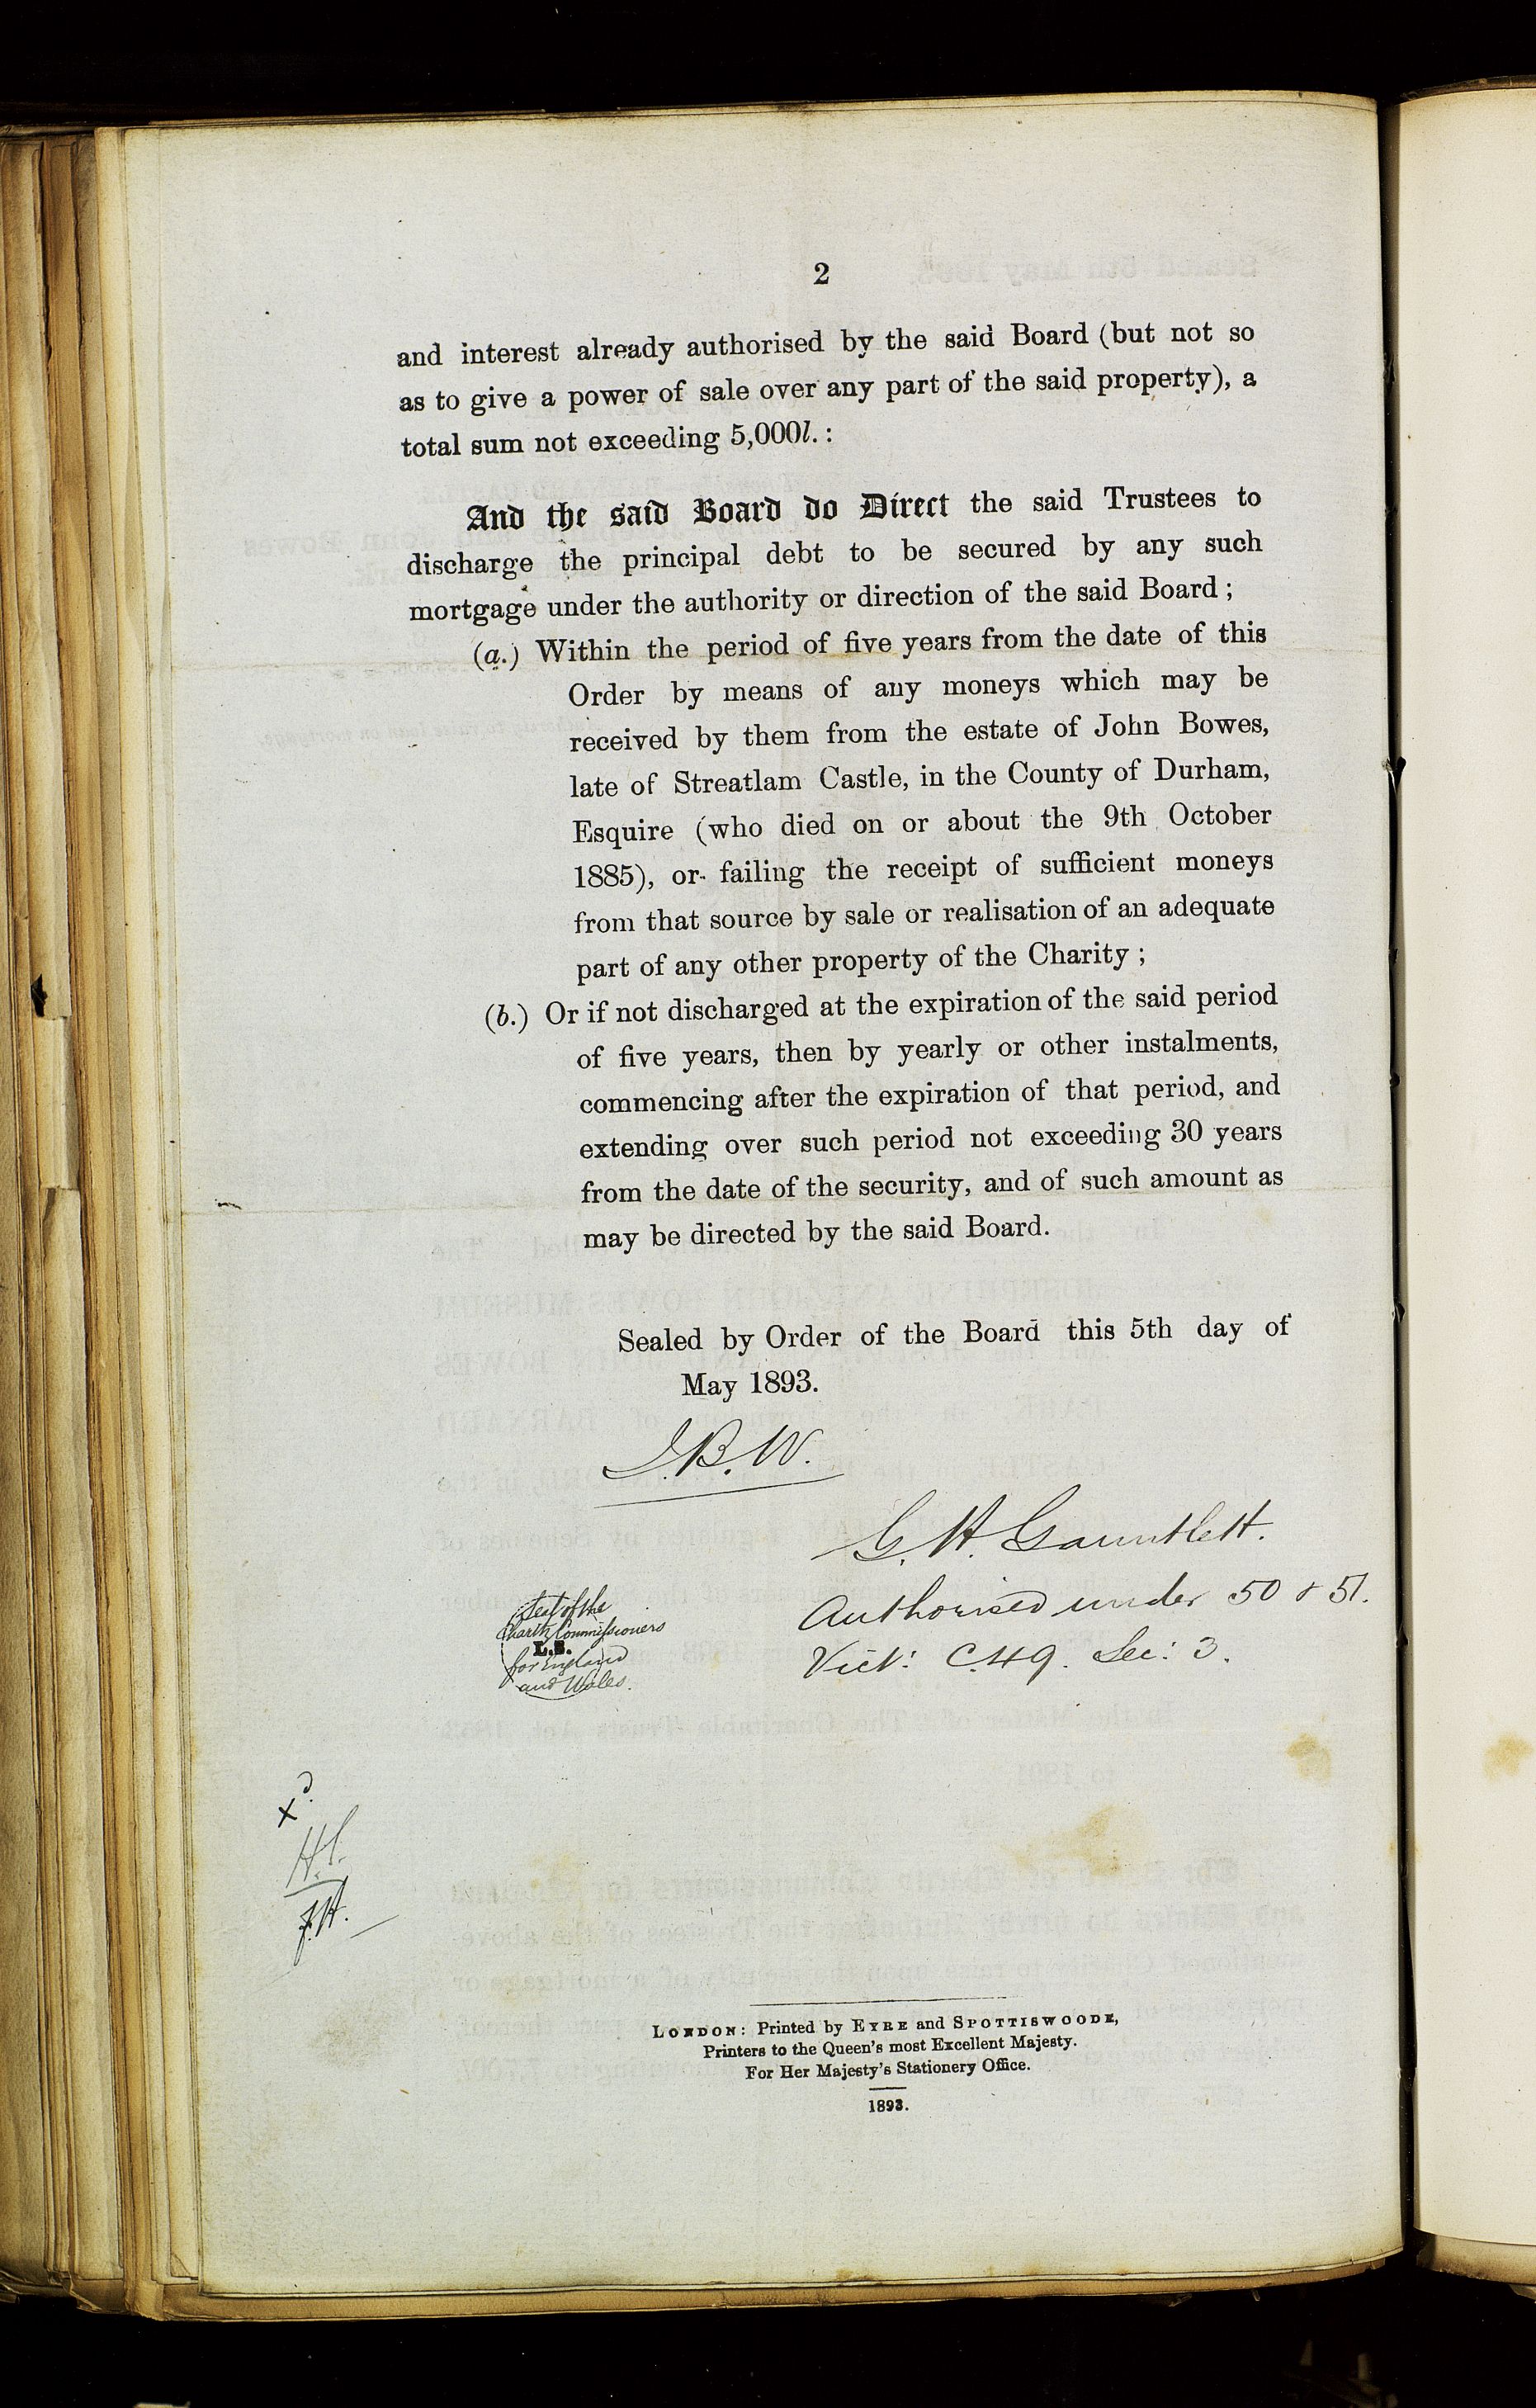 2
and interest already authorised by the said Board (but not so
as to give a power of sale over any part of the said property), a
total sum not exceeding 5,000l. :
And the said Board do Direct the said Trustees to
discharge the principal debt to be secured by any such
mortgage under the authority or direction of the said Board ;
(a.) Within the period of five years from the date of this
Order by means of any moneys which may be
received by them from the estate of John Bowes,
late of Streatlam Castle, in the County of Durham,
Esquire (who died on or about the 9th October
1885), or failing the receipt of sufficient moneys
from that source by sale or realisation of an adequate
part of any other property of the Charity ;
(b.) Or if not discharged at the expiration of the said period
of five years, then by yearly or other instalments,
commencing after the expiration of that period, and
extending over such period not exceeding 30 years
from the date of the security, and of such amount as
may be directed by the said Board.
Sealed by Order of the Board this 5th day of
May 1893.
J.B.W.
G. H. Gauntlett.
Authorised under 50 & 51.
Vict: C.49. Sec: 3.
Seal of the
Charity Commissioners
L.S.
for England
and Wales.
x d.
H.
J.H.
LONDON: Printed by EYRE and SPOTTISWOODE,
Printers to the Queen's most Excellent Majesty.
For Her Majesty's Stationery Office.
1893.